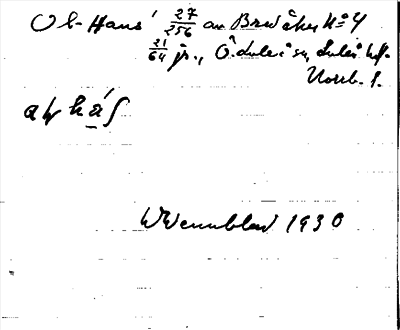 Ol-Hans' 27/256 av Bredåker No 4
21/64 jr., Ö. Luleå sn, Luleå
Norrb. l.
av
WWennblad 1930